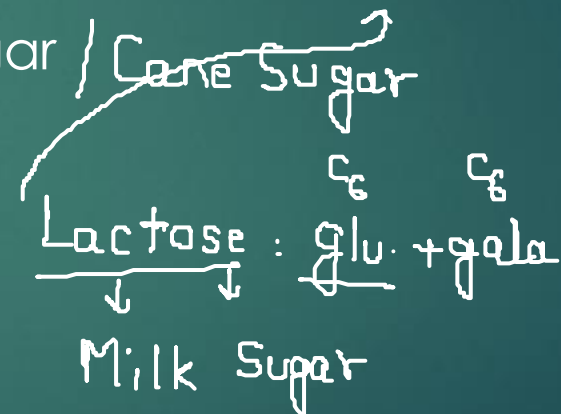 ar / Cane Sugar
C₆ C₆
Lactose : glu. + gala
Milk Sugar